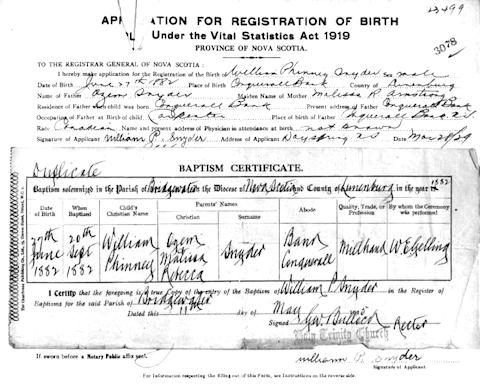 23499
APPLICATION FOR REGISTRATION OF BIRTH
Under the Vital Statistics Act 1919
3078
PROVINCE OF NOVA SCOTIA.
TO THE REGISTRAR GENERAL OF NOVA SCOTIA :
I hereby make application for the Registration of the Birth of William Phinney Snyder Sex male
Date of Birth June 27th 1882 Place of Birth Conquerall Bank County of Lunenburg
Name of Father Ozem Snyder Maiden Name of Mother Melissa R. Armstrong
Residence of Father when child was born Conquerall Bank Present address of Father Conquerall Bank
Occupation of Father at Birth of Child Carpenter Place of birth of Father Conquerall Bank N.S
Race Canadian Name and present address of Physician in attendance at birth not known
Signature of Applicant William P. Snyder Address of Applicant Dayspring N.S Date Mar 28/29
Duplicate
BAPTISM CERTIFICATE.
Baptism solemnized in the Parish of Bridgewater in the Diocese of Nova Scotia and County of Lunenburg in the year 1882
Date of Birth When Baptized Child's Christian Name Parents' Names Christian Surname Abode Quality, Trade, or Profession By whom the Ceremony was performed
27th June 1882 20th Sept 1882 William Phinney Ozem & Malissa Rebecca Snyder Bank Conquerall Millhand W E Gelling
I Certify that the foregoing is a true Copy of the entry of the Baptism of William P. Snyder in the Register of
Baptisms for the said Parish of Bridgewater
Dated this 11th day of May
Signed G.W. Bullock Rector
Holy Trinity Church
If sworn before a Notary Public affix seal.
William P. Snyder
Signature of Applicant
For Information respecting the filling out of this Form, see Instructions on the reverse side.